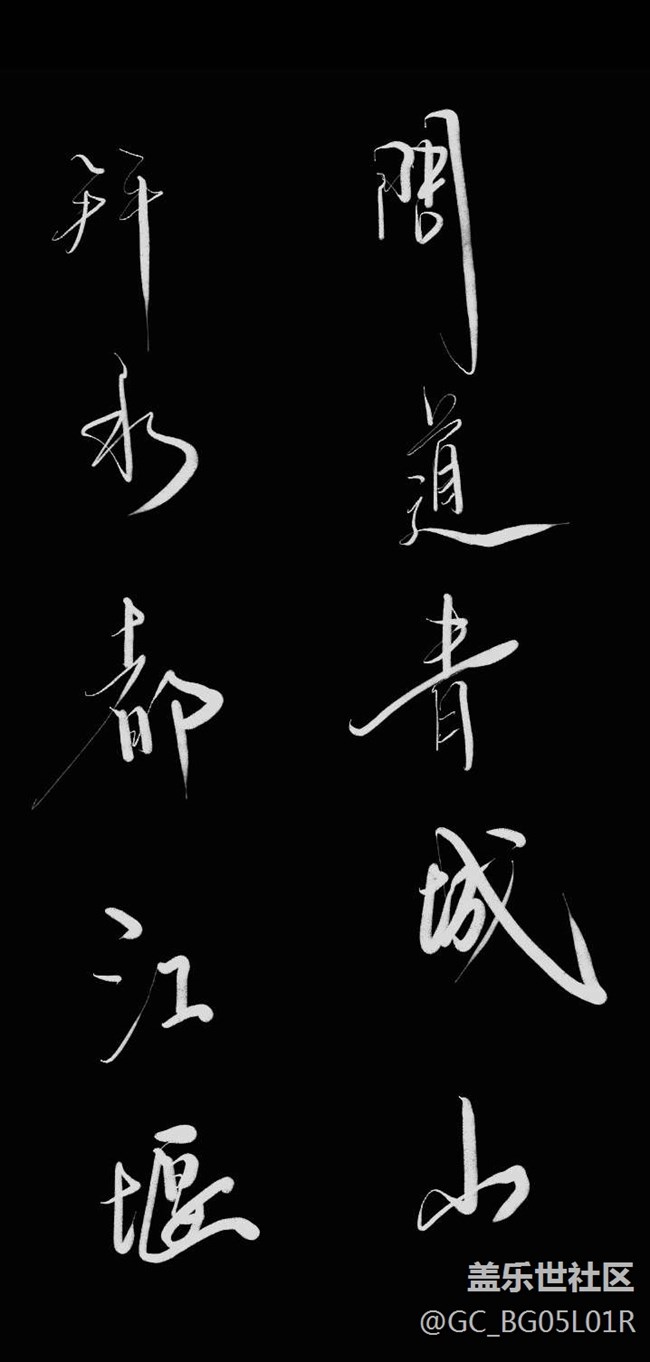 問道青城山
拜水都江堰
盖乐世社区
@GC_BG05L01R